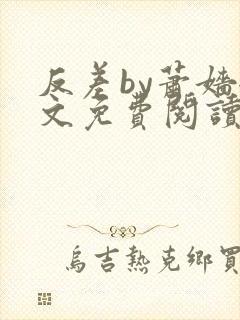 反差by蕭嬙
文免費閱讀
烏吉熱克鄉買